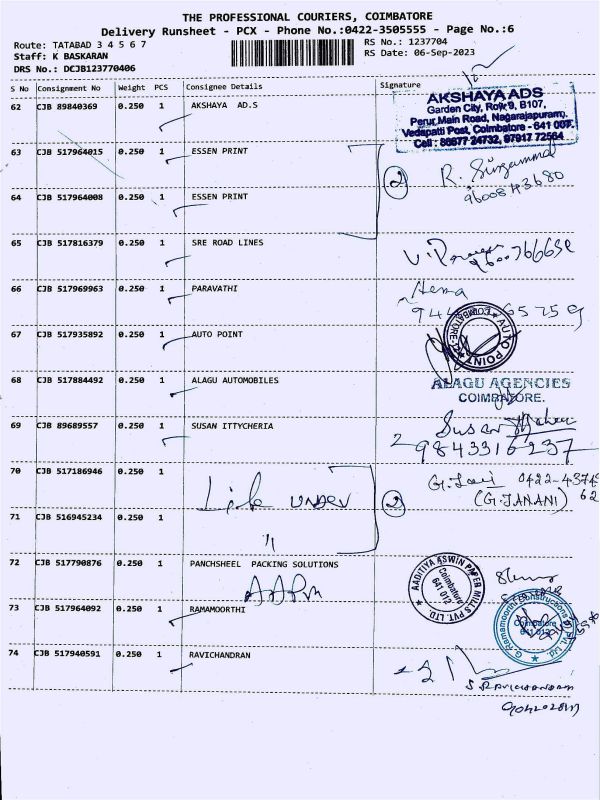 THE PROFESSIONAL COURIERS, COIMBATORE
Delivery Runsheet - PCX - Phone No.:0422-3505555 - Page No.:6
Route: TATABAD 3 4 5 6 7
RS No.: 1237704
Staff: K BASKARAN
RS Date: 06-Sep-2023
DRS No.: DCJB123770406
S No Consignment No Weight PCS Consignee Details Signature
62 CJB 89840369 0.250 1 AKSHAYA AD.S
AKSHAYA ADS
Garden City, Row 9, B107,
Perur Main Road, Nagarajapuram,
Vedapatti Post, Coimbatore - 641 007.
Cell : 80677 24732, 97917 72564
63 CJB 517964015 0.250 1 ESSEN PRINT
2 R.
64 CJB 517964008 0.250 1 ESSEN PRINT
65 CJB 517816379 0.250 1 SRE ROAD LINES
66 CJB 517969963 0.250 1 PARAVATHI
Hema
67 CJB 517935892 0.250 1 AUTO POINT
AUTO POINT
COIMBATORE
68 CJB 517884492 0.250 1 ALAGU AUTOMOBILES
ALAGU AGENCIES
COIMBATORE.
69 CJB 89689557 0.250 1 SUSAN ITTYCHERIA
Susan
9843316237
70 CJB 517186946 0.250 1
2 0422-4374
(G.JANANI) 62
71 CJB 516945234 0.250 1
72 CJB 517790876 0.250 1 PANCHSHEEL PACKING SOLUTIONS
AADITIYA ASWIN PAPER MILLS PVT. LTD.
Coimbatore
641 012
73 CJB 517964092 0.250 1 RAMAMOORTHI
G. Ramamoorthi Constructions
Pvt. Ltd
Coimbatore
641 012
74 CJB 517940591 0.250 1 RAVICHANDRAN
S RAVICHANDRAN